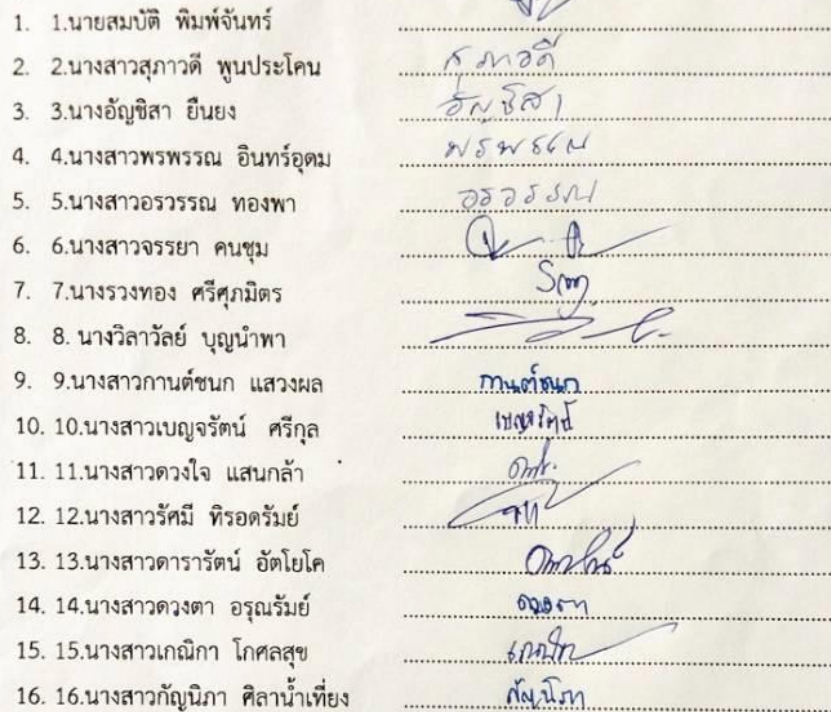 1. 1.นายสมบัติ พิมพ์จันทร์
2. 2.นางสาวสุภาวดี พูนประโคน สุภาวดี
3. 3.นางอัญชิสา ยืนยง อัญชิสา
4. 4.นางสาวพรพรรณ อินทร์อุดม พรพรรณ
5. 5.นางสาวอรวรรณ ทองพา อรวรรณ
6. 6.นางสาวจรรยา คนชุม
7. 7.นางรวงทอง ศรีศุภมิตร
8. 8. นางวิลาวัลย์ บุญนำพา
9. 9.นางสาวกานต์ชนก แสวงผล กานต์ชนก
10. 10.นางสาวเบญจรัตน์ ศรีกุล เบญจรัตน์
11. 11.นางสาวดวงใจ แสนกล้า
12. 12.นางสาวรัศมี ทิรอดรัมย์
13. 13.นางสาวดารารัตน์ อัตโยโค
14. 14.นางสาวดวงตา อรุณรัมย์ ดวงตา
15. 15.นางสาวเกณิกา โกศลสุข
16. 16.นางสาวกัญนิภา ศิลาน้ำเที่ยง กัญนิภา